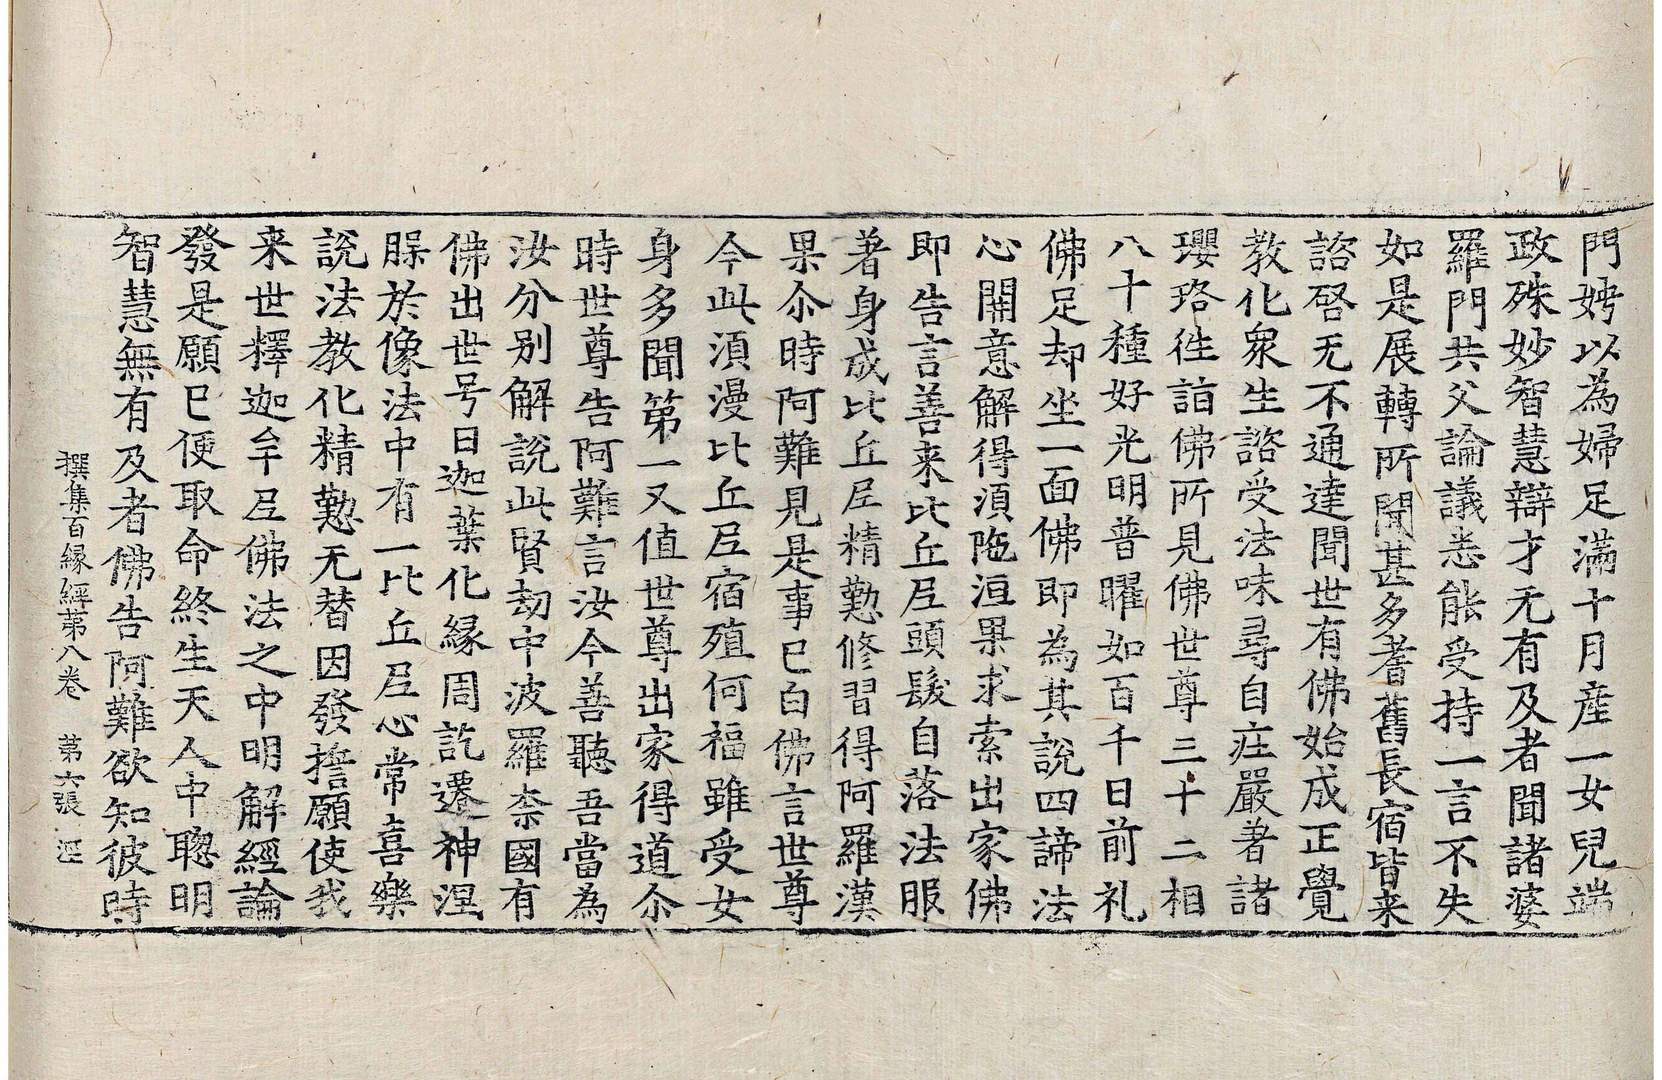 門娉以為婦足滿十月産一女兒端
政殊妙智慧辯才无有及者聞諸婆
羅門共父論議悉能受持一言不失
如是展轉所聞甚多耆舊長宿皆来
諮啓无不通達聞世有佛始成正覺
教化衆生諮受法味尋自疰嚴著諸
瓔珞徃詣佛所見佛世尊三十二相
八十種好光明普曜如百千日前礼
佛足却坐一面佛即為其説四諦法
心開意解得湏陁洹果求索出家佛
即告言善来比丘尼頭髮自落法服
著身成比丘尼精懃修習得阿羅漢
果尒時阿難見是事已白佛言世尊
今此湏漫比丘尼宿殖何福雖受女
身多聞第一又值世尊出家得道尒
時世尊告阿難言汝今善聽吾當為
汝分別解説此賢劫中波羅柰國有
佛出世号曰迦葉化縁周訖遷神涅
脲於像法中有一比丘尼心常喜樂
説法教化精懃无替因發擔願使我
来世釋迦牟尼佛法之中明解經論
發是願已便取命終生天人中聦明
智慧無有及者佛告阿難欲知彼時
撰集百縁經苐八卷 第六張 涇